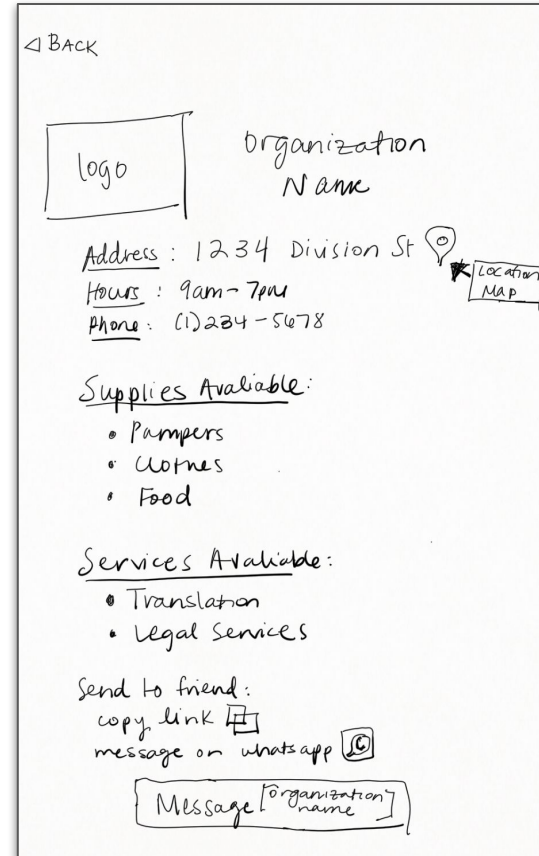 BACK
logo
Organization
Name
Address: 1234 Division St
Location
Map
Hours: 9am-7pm
Phone: (1)234-5678
Supplies Avaliable:
• Pampers
• Clothes
• Food
Services Avaliable:
• Translation
• Legal Services
Send to friend:
copy link
message on whatsapp
Message [organization
name]